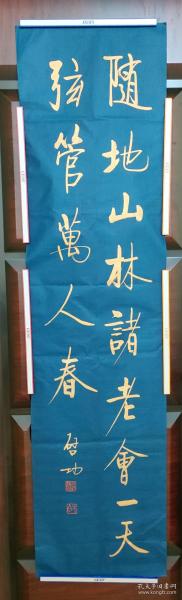 随地山林諸老會一天
弦管萬人春
啓功
孔夫子旧书网